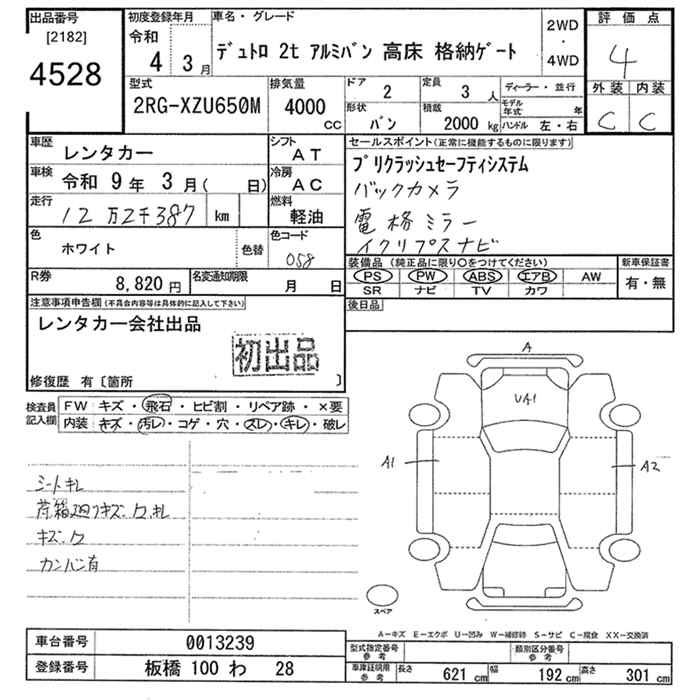 出品番号
[2182]
4528
初度登録年月
令和
4 3月
車名・グレード
デュトロ 2t アルミバン 高床 格納ゲート
2WD
・
4WD
評価点
4
外装 内装
C C
型式
2RG-XZU650M
排気量
4000
CC
ドア
2
定員
3 人
ディーラー・並行
モデル年式 年
形状
バン
積載
2000 kg
ハンドル 左・右
車歴
レンタカー
シフト
AT
車検
令和 9年 3月( 日)
冷房
AC
走行
12万2千387 km
燃料
軽油
色
ホワイト
色替
色コード
058
R券
8,820 円
名変通知期限
月 日
セールスポイント(正常に機能するものに限ります)
プリクラッシュセーフティシステム
バックカメラ
電格ミラー
イクリプスナビ
装備品(純正品に限り○をつけてください)
PS PW ABS エアB AW
SR ナビ TV カワ
新車保証書
有・無
後日品
注意事項申告欄(不具合内容等は具体的に記入して下さい)
レンタカー会社出品
初出品
修復歴 有〔箇所 〕
検査員記入欄
FW キズ・飛石・ヒビ割・リペア跡・×要
内装 キズ・汚レ・コゲ・穴・スレ・キレ・破レ
シートキレ
荷箱廻りキズ.ワ.キレ
キズ.ワ
カンバン有
A
UA1
A1
A2
スペア
A-キズ E-エクボ U-凹み W-補修跡 S-サビ C-腐食 XX-交換済
車台番号 0013239
登録番号 板橋 100 わ 28
型式指定番号参考
類別区分番号参考
車庫証明用参考
長さ 621 cm 幅 192 cm 高さ 301 cm